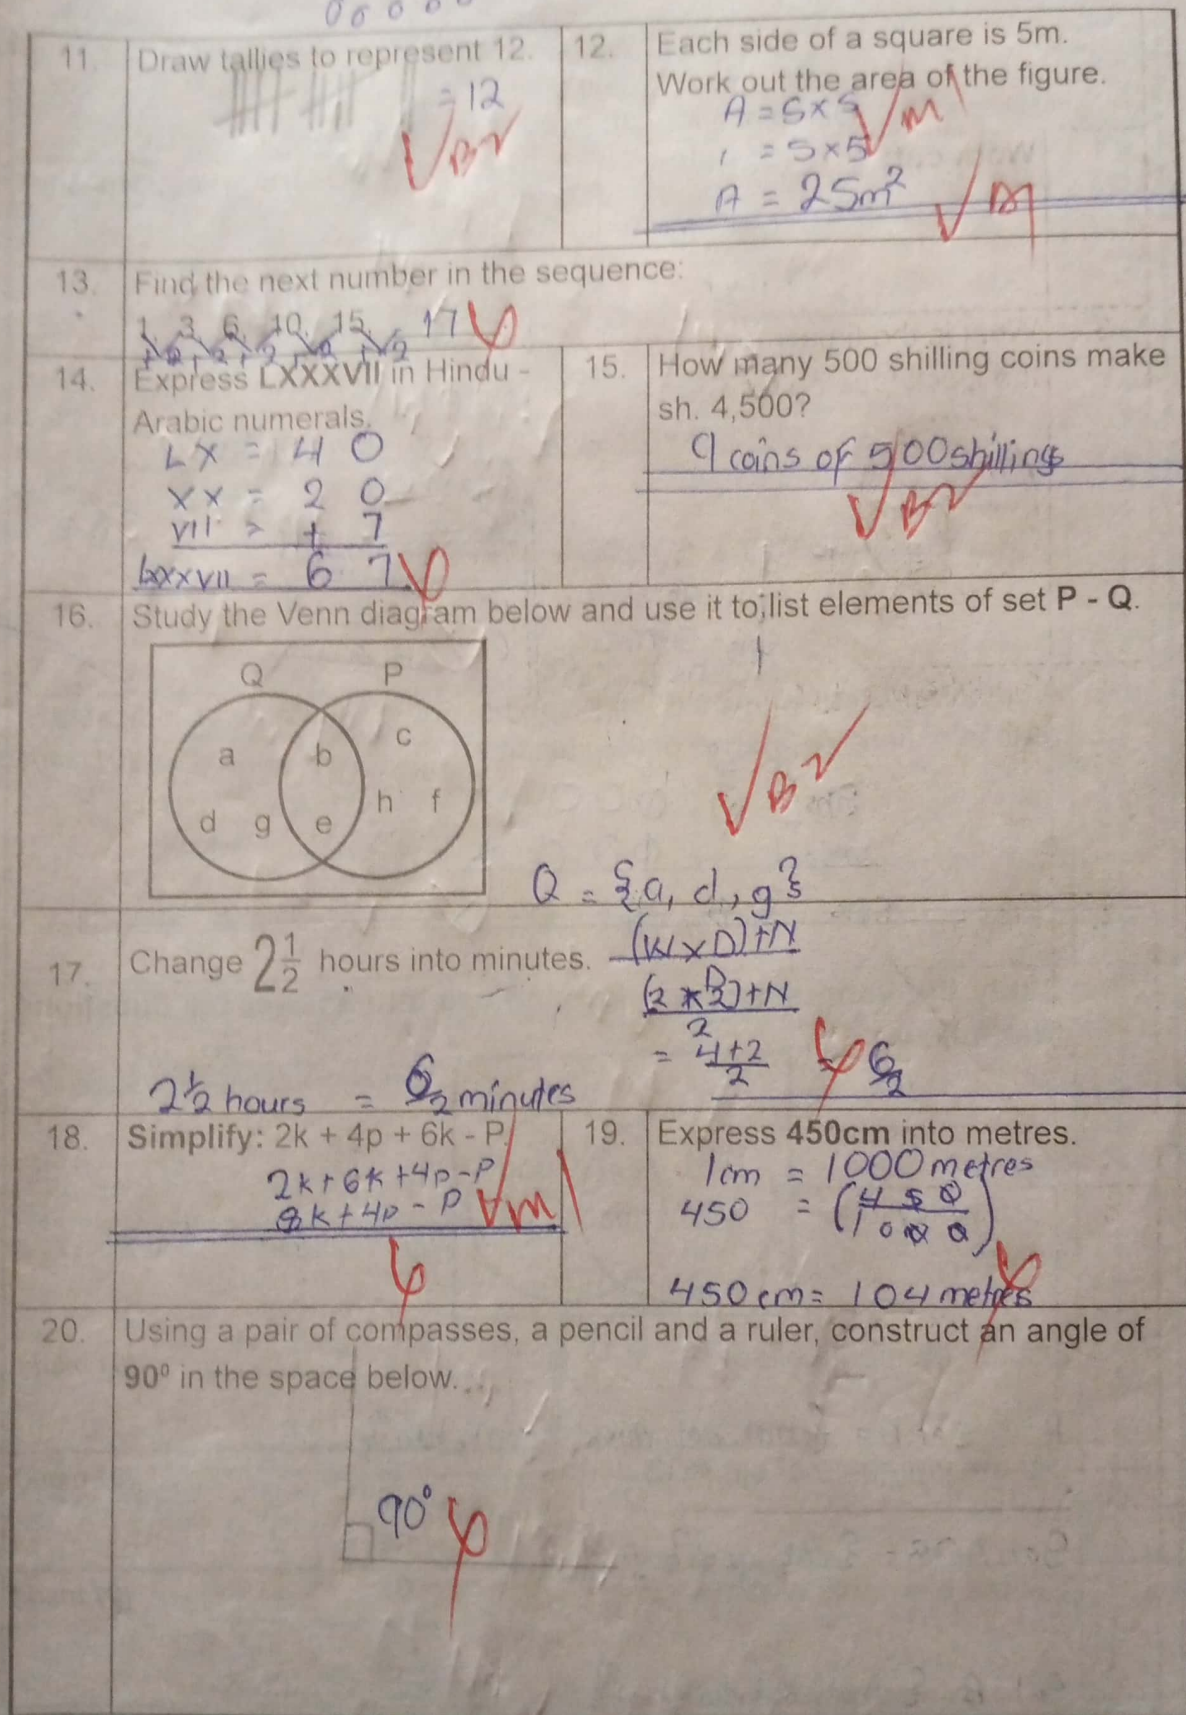 11. Draw tallies to represent 12.
= 12
B2
12. Each side of a square is 5m.
Work out the area of the figure.
A = S × S
= 5 × 5
M1
A = 25m²
A1
13. Find the next number in the sequence:
1, 3, 6, 10, 15, 17
14. Express LXXXVII in Hindu -
Arabic numerals.
LX = 40
XX = 20
VII = + 7
LXXXVII = 67
15. How many 500 shilling coins make
sh. 4,500?
9 coins of 500 shillings
B2
16. Study the Venn diagram below and use it to list elements of set P - Q.
Q P
a b c
d g e h f
B2
Q = {a, d, g}
17. Change 2 1/2 hours into minutes.
(W × D) + N
D
(2 × 2) + N
2
= 4 + 2
2
= 6/2
2 1/2 hours = 6/2 minutes
18. Simplify: 2k + 4p + 6k - P
2k + 6k + 4p - P
8k + 4p - P
M1
19. Express 450cm into metres.
1cm = 1000 metres
450 = (450
1000)
450cm = 104 metres
20. Using a pair of compasses, a pencil and a ruler, construct an angle of
90⁰ in the space below.
90°